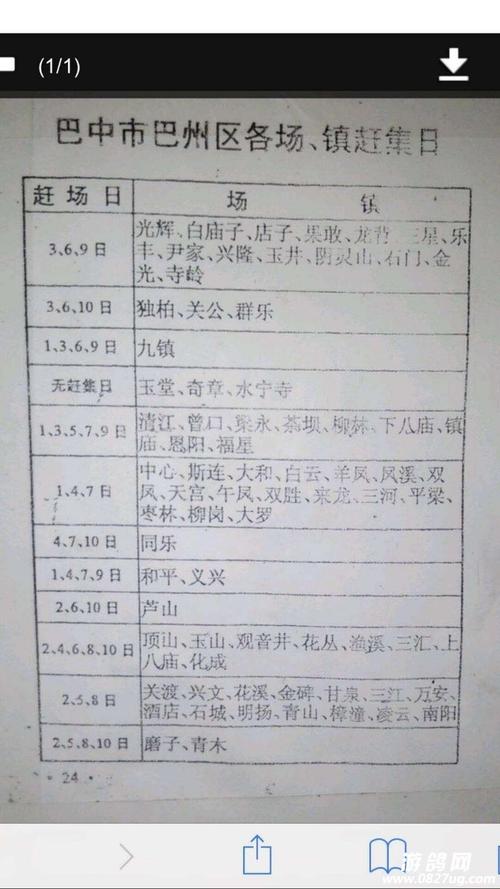 (1/1)
巴中市巴州区各场、镇赶集日
赶场日 场 镇
3、6、9日 光辉、白庙子、店子、果敢、龙背、三星、乐
丰、尹家、兴隆、玉井、阴灵山、石门、金
光、寺岭
3、6、10日 独柏、关公、群乐
1、3、6、9日 九镇
无赶集日 玉堂、奇章、水宁寺
1、3、5、7、9日 清江、曾口、梁永、茶坝、柳林、下八庙、镇
庙、恩阳、福星
1、4、7日 中心、斯连、大和、白云、羊凤、凤溪、双
凤、天宫、午凤、双胜、来龙、三河、平梁、
枣林、柳岗、大罗
4、7、10日 同乐
1、4、7、9日 和平、义兴
2、6、10日 芦山
2、4、6、8、10日 顶山、玉山、观音井、花丛、渔溪、三汇、上
八庙、化成
2、5、8日 关渡、兴文、花溪、金碑、甘泉、三江、万安、
酒店、石城、明扬、青山、樟潼、凌云、南阳
2、5、8、10日 磨子、青木
· 24 ·
游鸽网
www.0827uq.com